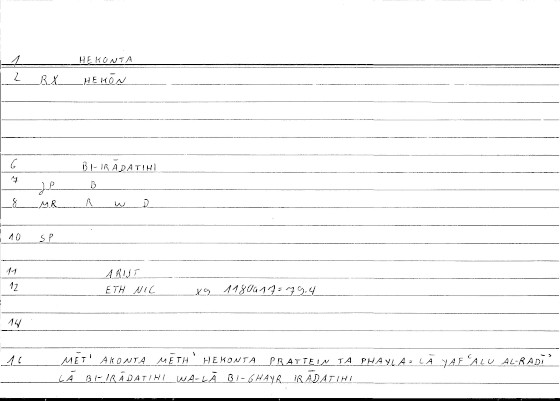 1 HEKONTA
2 RX HEKŌN
6 BI-IRĀDATIHI
7 JP B
8 MR R W D
10 SP
11 ARIST
12 ETH NIC x9 1180a17=79.4
14
16 MĒT' AKONTA MĒTH' HEKONTA PRATTEIN TA PHAYLA = LĀ YAF'ALU AL-RADĪ'
LĀ BI-IRĀDATIHI WA-LĀ BI-GHAYR IRĀDATIHI